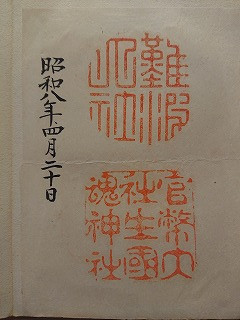 難波
大社
官幣大
社生國
魂神社
昭和八年四月二十日